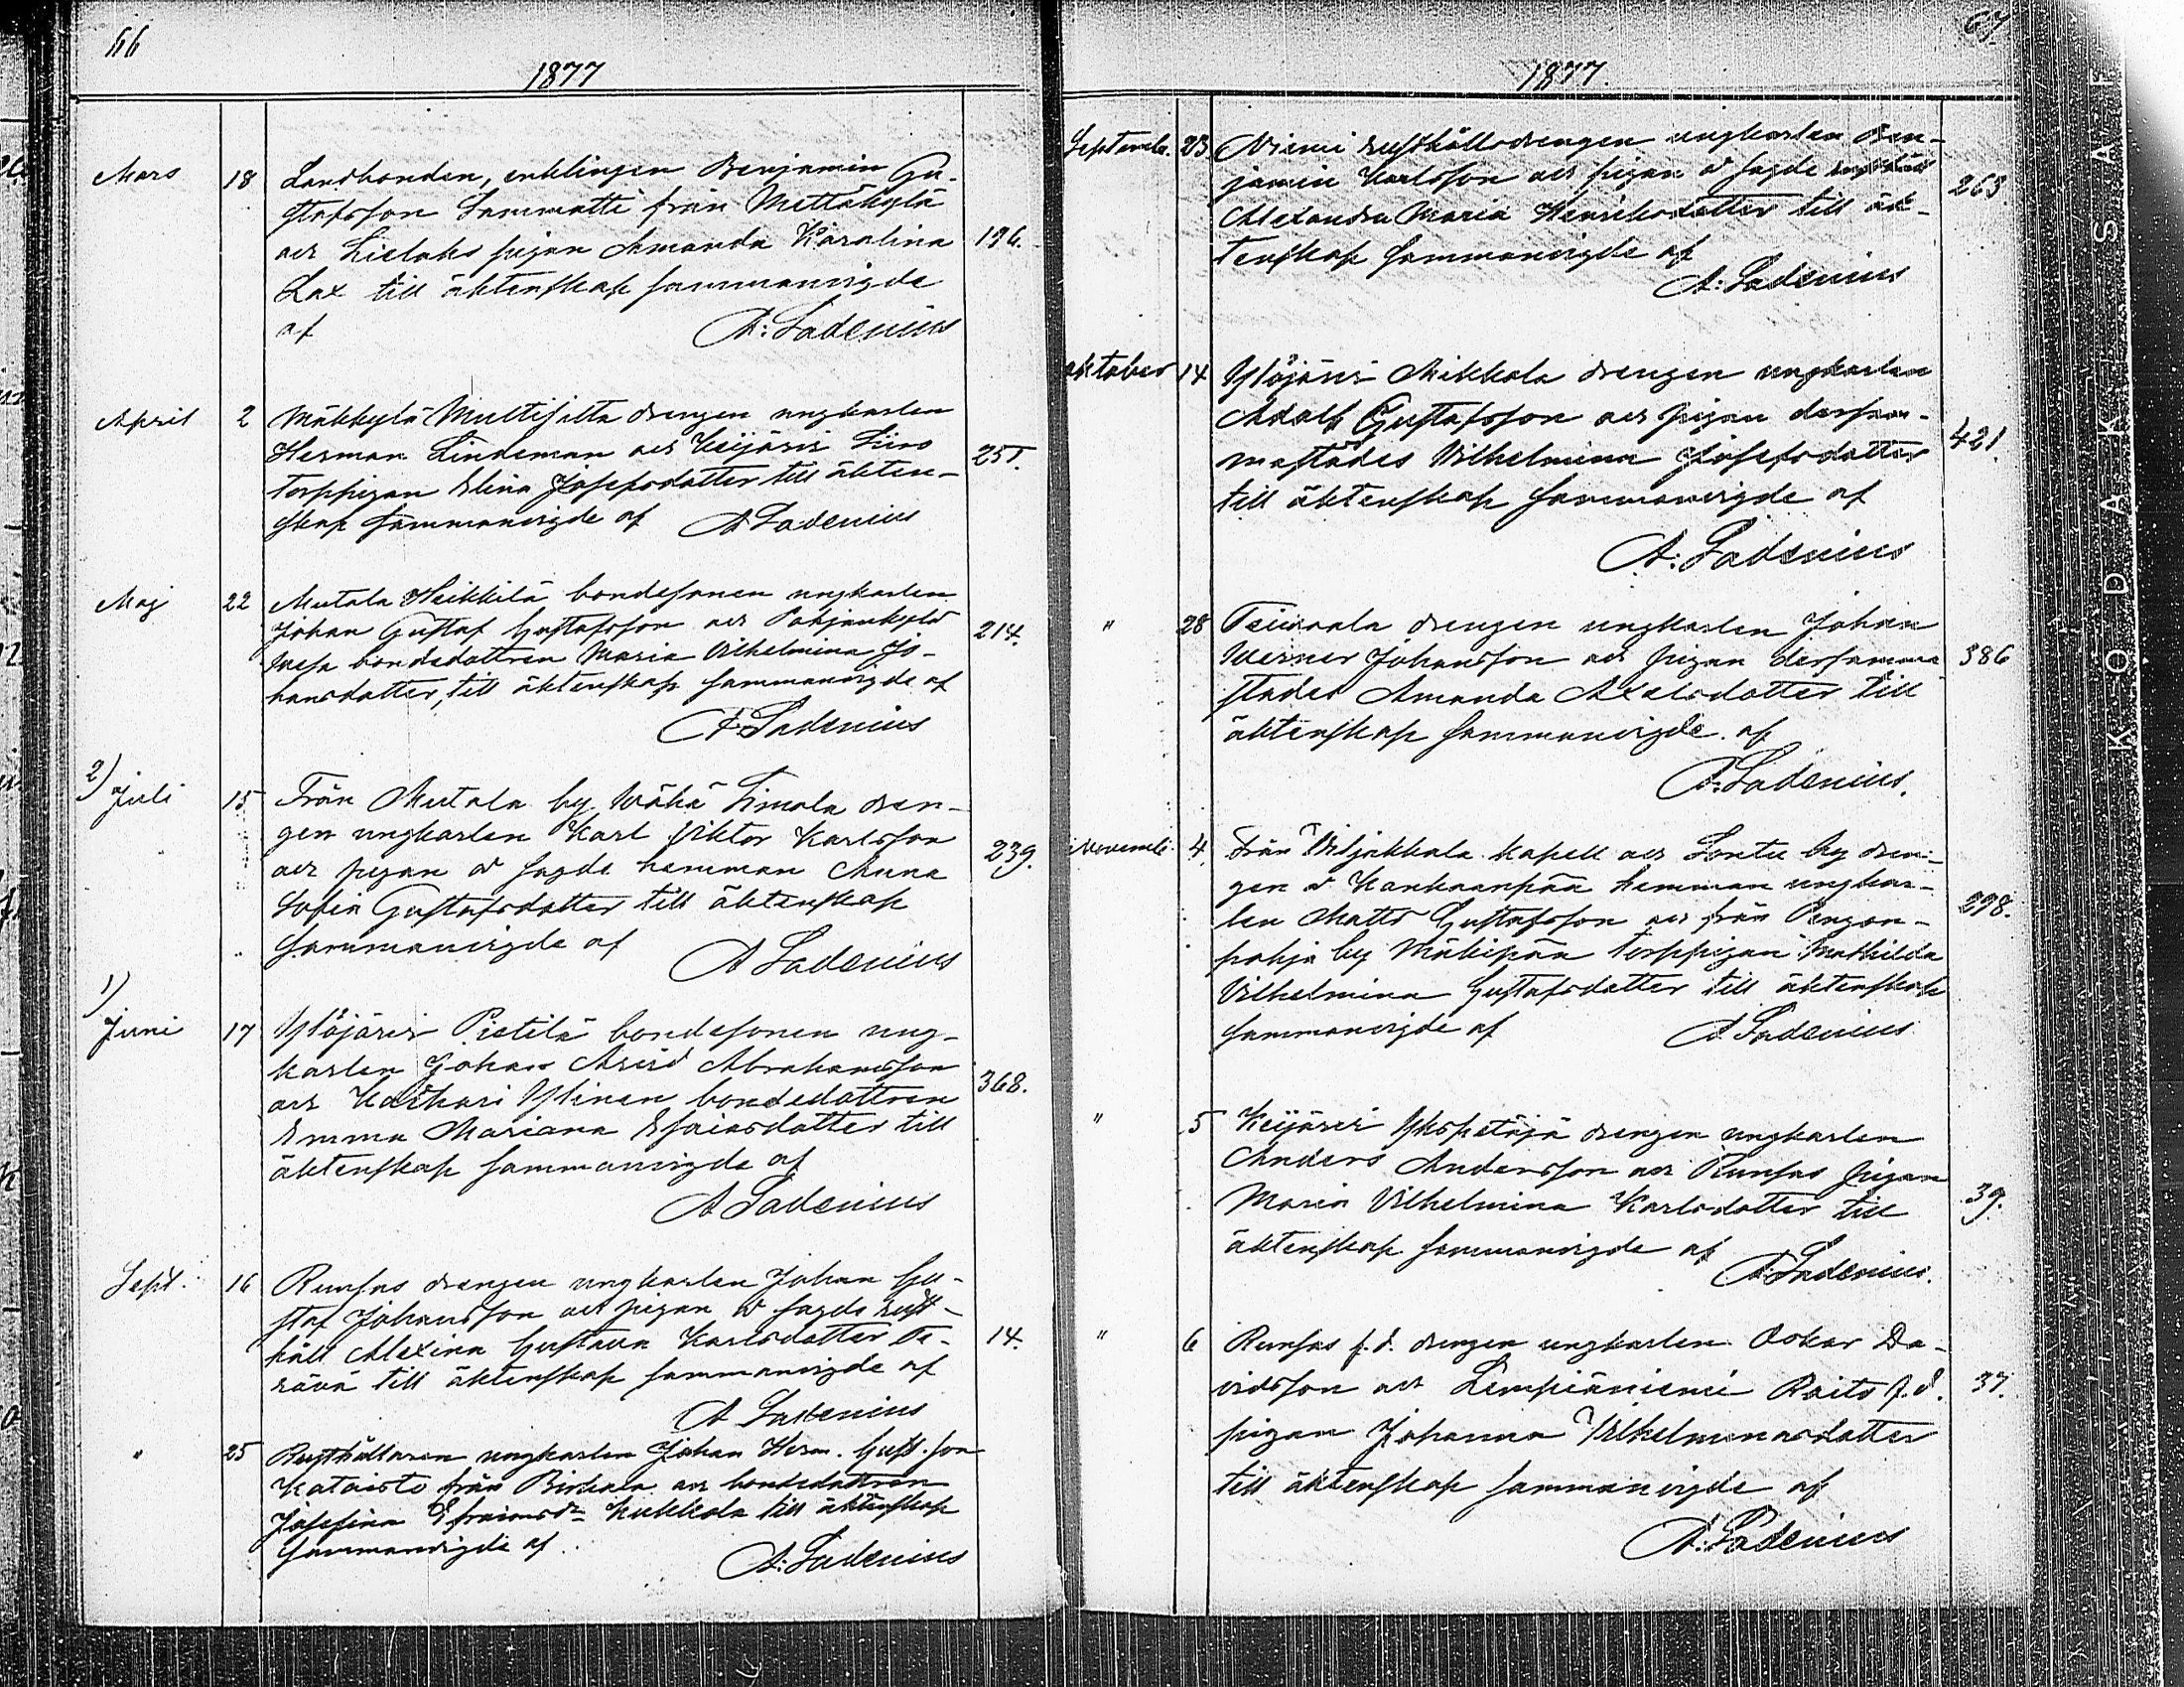 66
1877
Mars 18 Landbonden, enklingen Benjamin Gu-
stafsson Sammatti från Mettäkylä
och Lielaks pigan Amanda Karolina 196.
Lax till äktenskap sammanvigde
af A: Ladenius
April 2 Mäkkylä Multisilta drengen ungkarlen
Herman Lindeman och Keijärvi Siivo
torppigan Elina Josefsdotter till äkten- 251.
skap sammanvigde af A Ladenius
Maj 22 Mutala Heikkilä bondesonen ungkarlen
Johan Gustaf Gustafsson och Pohjankylä 214.
bondedottren Maria Vilhelmina Jo-
hansdotter, till äktenskap sammanvigde af
A: Ladenius
2)
Juli 15 Från Mutala by Wähä Simola dren-
gen ungkarlen Karl Viktor Karlsson
och pigan å sagde hemman Anna 239.
Sofia Gustafsdotter till äktenskap
sammanvigde af A Ladenius
1)
Juni 17 Ylöjärvi Pietilä bondesonen ung-
karlen Johan Arvid Abrahamsson
och Ylinen bondedottren 368.
Emma Mariana Esaiasdotter till
äktenskap sammanvigde af
A Ladenius
Sept. 16 Runsas drengen ungkarlen Johan Gu-
staf Johansson och pigan å sagde rust-
håll Alexina Gustava Karlsdotter 14.
till äktenskap sammanvigde af
A Ladenius
" 25 Rusthållaren ungkarlen Johan Herm. Gust.son
Kataisto från Birkala och bondedottren
Josefina Efraimsdr Kukkola till äktenskap
sammanvigde af
A: Ladenius
67.
1877.
September. 23 Niemi rusthållsdrengen ungkarlen Ben-
jamin Karlsson och pigan å sagde rusthåll 263.
Alexandra Maria Henriksdotter till äk-
tenskap sammanvigde af
A: Ladenius
oktober 14 Ylöjärvi Mikkola drengen ungkarlen
Adolf Gustafsson och pigan dersam-
mastädes Vilhelmina Josefsdotter 421.
till äktenskap sammanvigde af
A: Ladenius
" 28 Teivaala drengen ungkarlen Johan
Werner Johansson och pigan dersamma 386
städes Amanda Axelsdotter till
äktenskap sammanvigde af
A: Ladenius.
Novemb. 4 Från Viljakkala kapell och Sontu by dren-
gen å Kankaanpää hemman ungkar-
len Matts Gustafsson och från Pengon- 298.
pohja by Mäkipää torppigan Mathilda
Vilhelmina Gustafsdotter till äktenskap
sammanvigde af A Ladenius
" 5 Keijärvi Ykspetäjä drengen ungkarlen
Anders Andersson och Runsas pigan
Maria Vilhelmina Karlsdotter till 39.
äktenskap sammanvigde af
A: Ladenius.
" 6 Runsas f.d. drengen ungkarlen Oskar Da-
vidsson och Lempiäniemi Raito f.d. 37.
pigan Johanna Vilhelminasdotter
till äktenskap sammanvigde af
A: Ladenius
KODAK SAFE